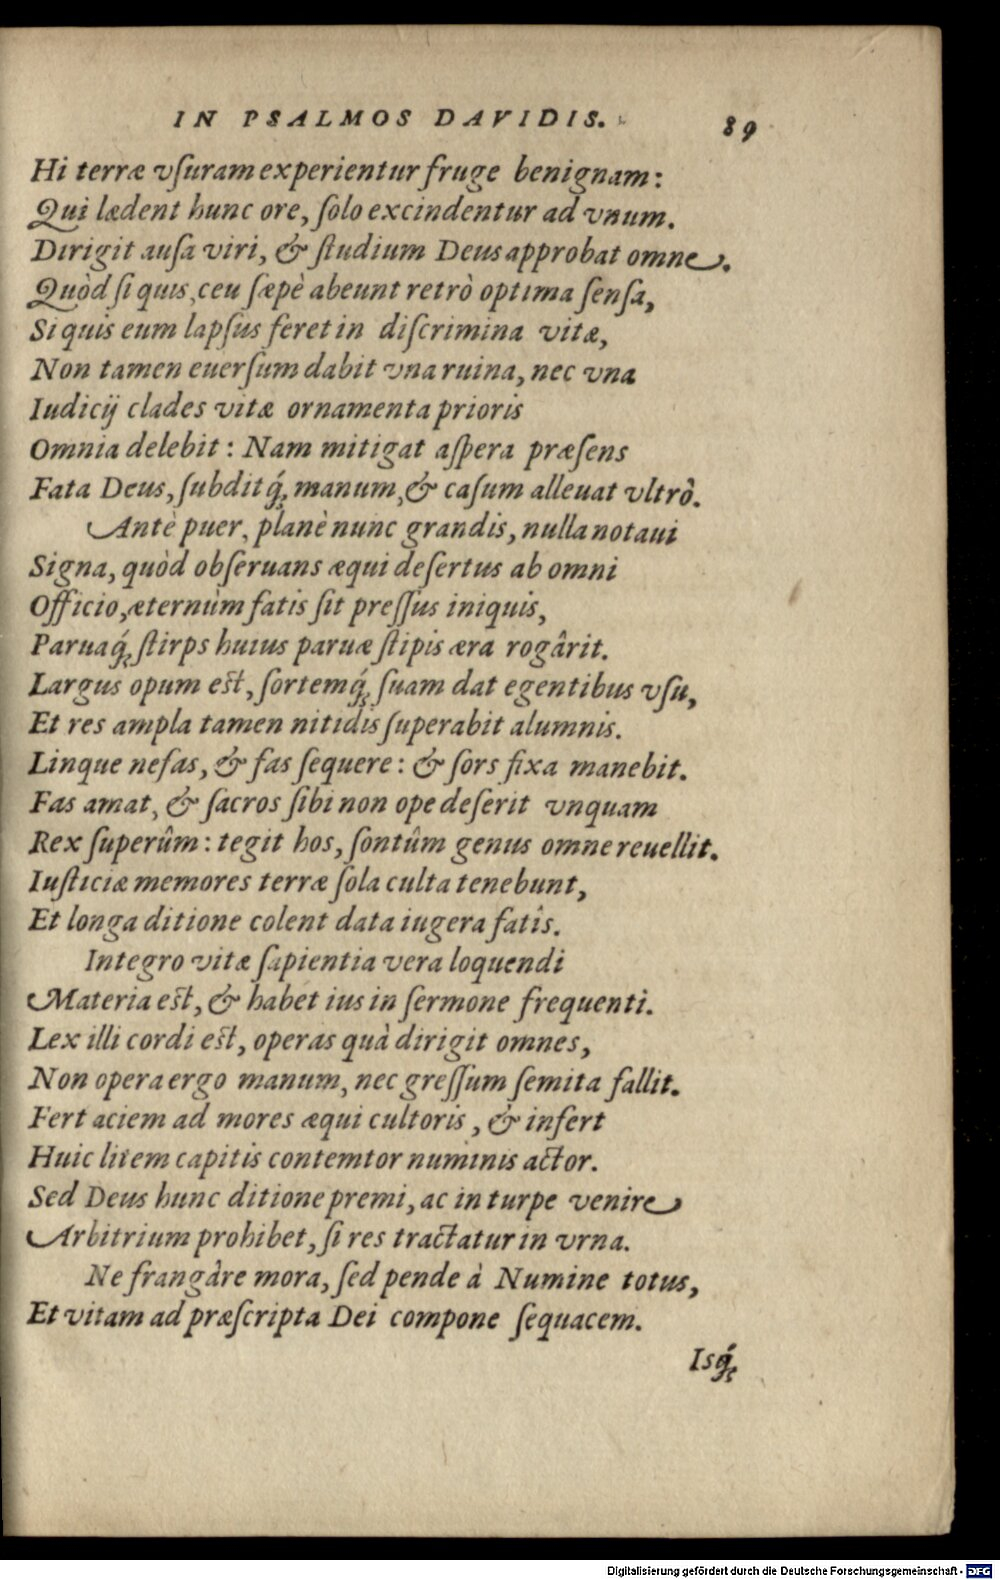 IN PSALMOS DAVIDIS. 89
Hi terræ vſuram experientur fruge benignam:
Qui lædent hunc ore, ſolo excindentur ad vnum.
Dirigit auſa viri, & ſtudium Deus approbat omne.
Quòd ſi quis, ceu ſæpè abeunt retrò optima ſenſa,
Si quis eum lapſus feret in diſcrimina vitæ,
Non tamen euerſum dabit vna ruina, nec vna
Iudicij clades vitæ ornamenta prioris
Omnia delebit: Nam mitigat aſpera præſens
Fata Deus, ſubditq́; manum, & caſum alleuat vltrò.
Antè puer, planè nunc grandis, nulla notaui
Signa, quòd obſeruans æqui deſertus ab omni
Officio, æternùm fatis ſit preſſus iniquis,
Paruaq́; ſtirps huius paruæ ſtipis æra rogârit.
Largus opum eſt, ſortemq́; ſuam dat egentibus vſu,
Et res ampla tamen nitidis ſuperabit alumnis.
Linque nefas, & fas ſequere: & ſors fixa manebit.
Fas amat, & ſacros ſibi non ope deſerit vnquam
Rex ſuperûm: tegit hos, ſontûm genus omne reuellit.
Iuſticiæ memores terræ ſola culta tenebunt,
Et longa ditione colent data iugera fatis.
Integro vitæ ſapientia vera loquendi
Materia eſt, & habet ius in ſermone frequenti.
Lex illi cordi eſt, operas quà dirigit omnes,
Non opera ergo manum, nec greſſum ſemita fallit.
Fert aciem ad mores æqui cultoris, & infert
Huic litem capitis contemtor numinis actor.
Sed Deus hunc ditione premi, ac in turpe venire
Arbitrium prohibet, ſi res tractatur in vrna.
Ne frangâre mora, ſed pende à Numine totus,
Et vitam ad præſcripta Dei compone ſequacem.
Isq́;
Digitalisierung gefördert durch die Deutsche Forschungsgemeinschaft - DFG